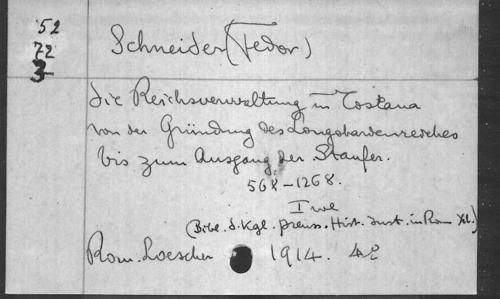 52
72
3
Schneider (Fedor)
Die Reichsverwaltung in Toskana
von der Gründung des Longobardenreiches
bis zum Ausgang der Staufer.
568-1268.
I
(Bibl. d. Kgl. preuss. Hist. Inst. in Rom XI.)
Rom. Loescher 1914. 4°